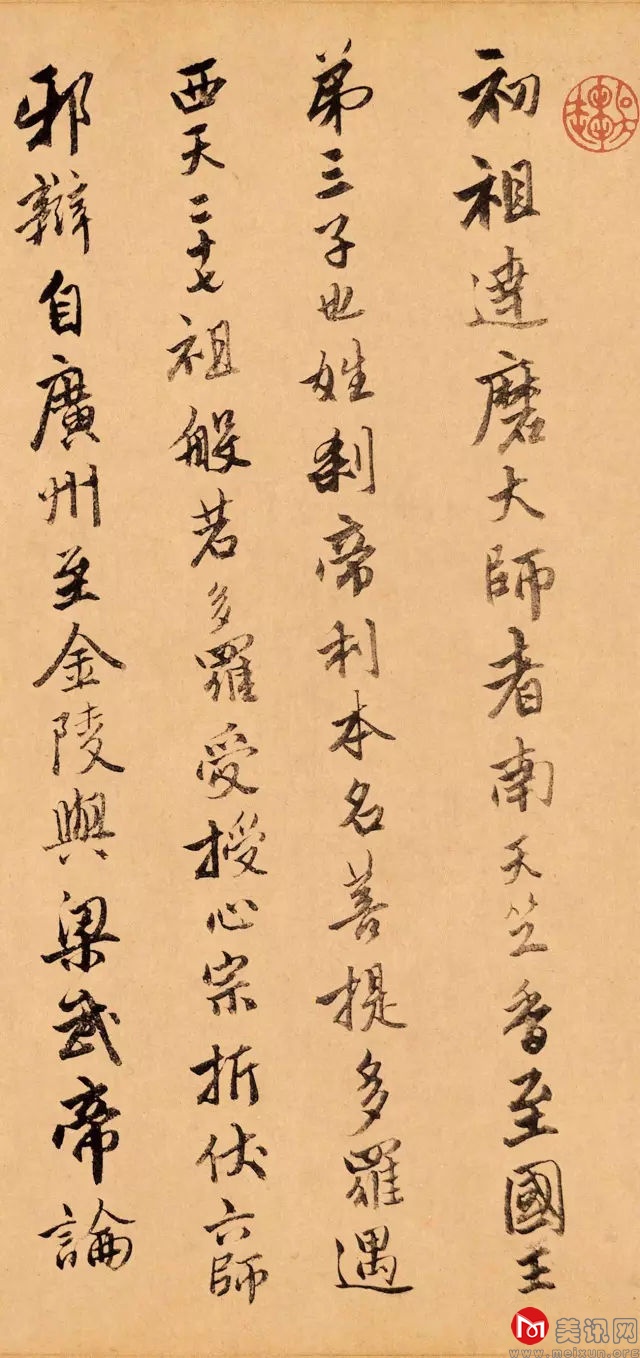 初祖達磨大師者南天竺香至國王
弟三子也姓刹帝利本名菩提多羅遇
西天二十七祖般若多羅受授心宗折伏六師
邪辯自廣州至金陵與梁武帝論
美讯网
www.meixun.org